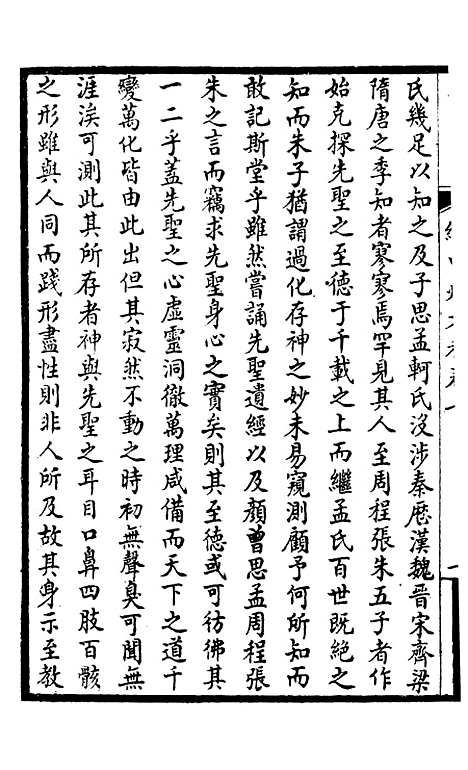 氏幾足以知之及子思孟軻氏沒涉秦歷漢魏晉宋齊梁
隋唐之季知者寥寥焉罕見其人至周程張朱五子者作
始克探先聖之至德于千載之上而繼孟氏百世既絕之
知而朱子猶謂過化存神之妙未易窺測顧予何所知而
敢記斯堂乎雖然嘗誦先聖遺經以及顏曾思孟周程張
朱之言而竊求先聖身心之實矣則其至德或可彷彿其
一二乎蓋先聖之心虛靈洞徹萬理咸備而天下之道千
變萬化皆由此出但其寂然不動之時初無聲臭可聞無
涯涘可測此其所存者神與先聖之耳目口鼻四肢百骸
之形雖與人同而踐形盡性則非人所及故其身示至教